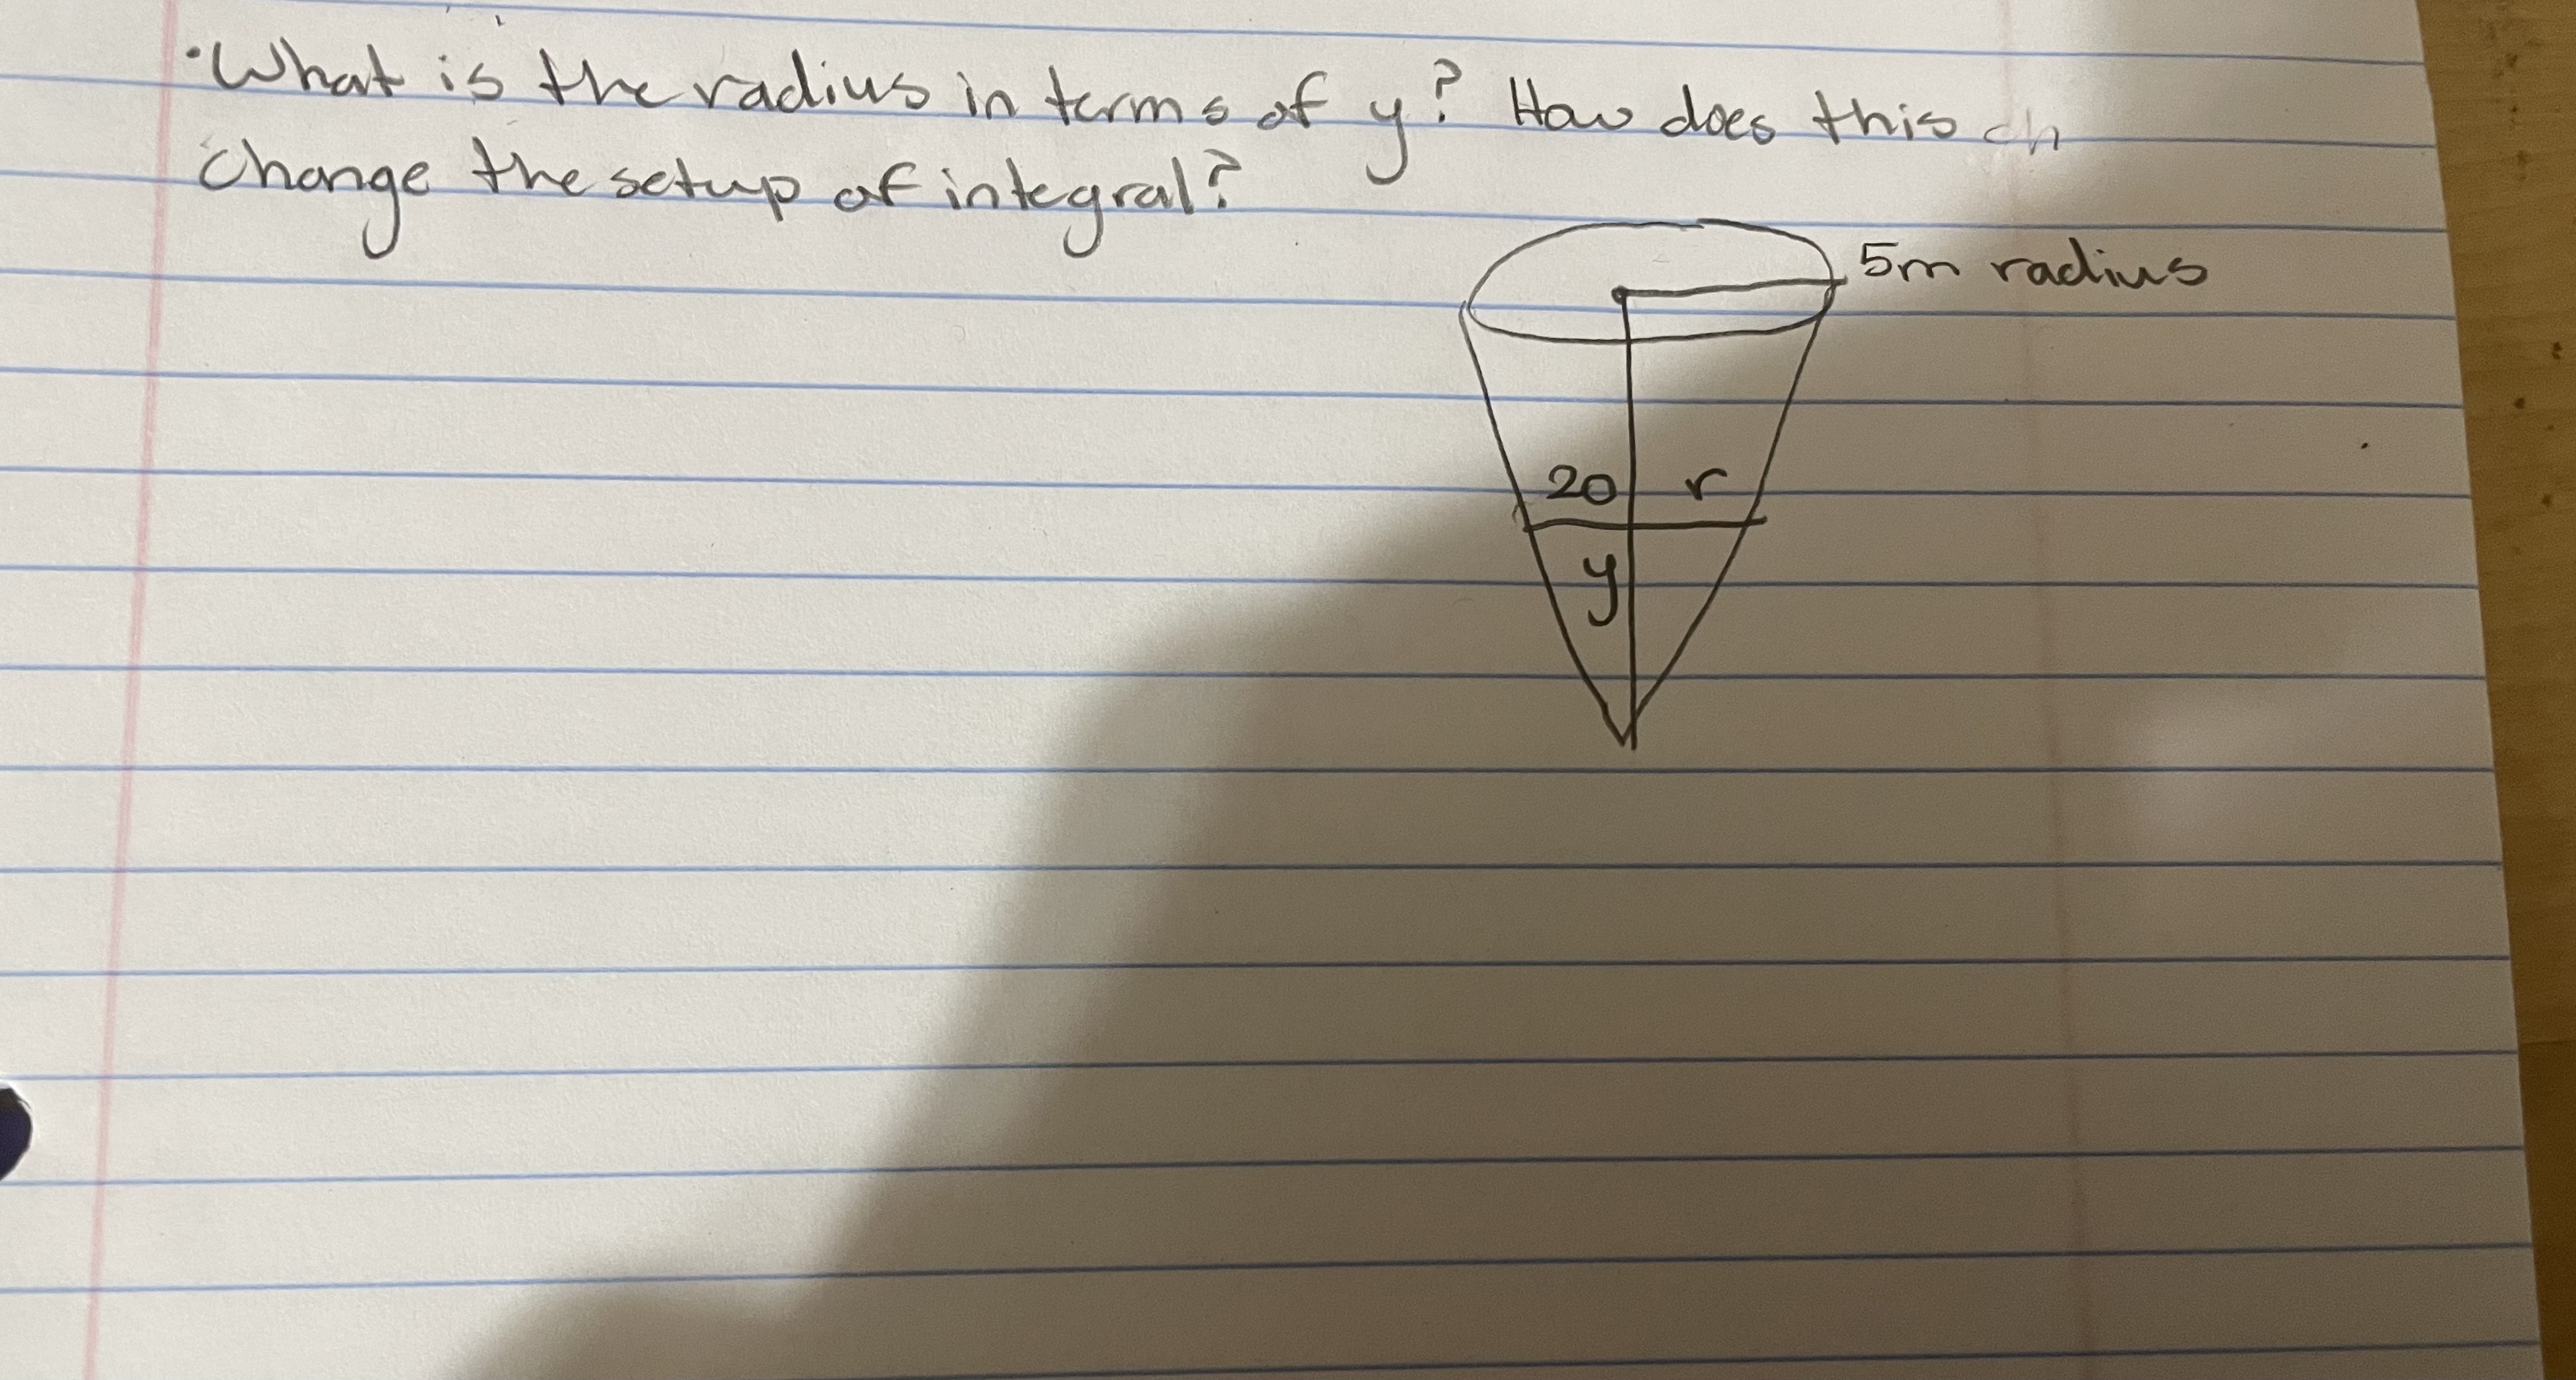 ·What is the radius in terms of y? How does this ch
change the setup of integral?
5m radius
20 r
y